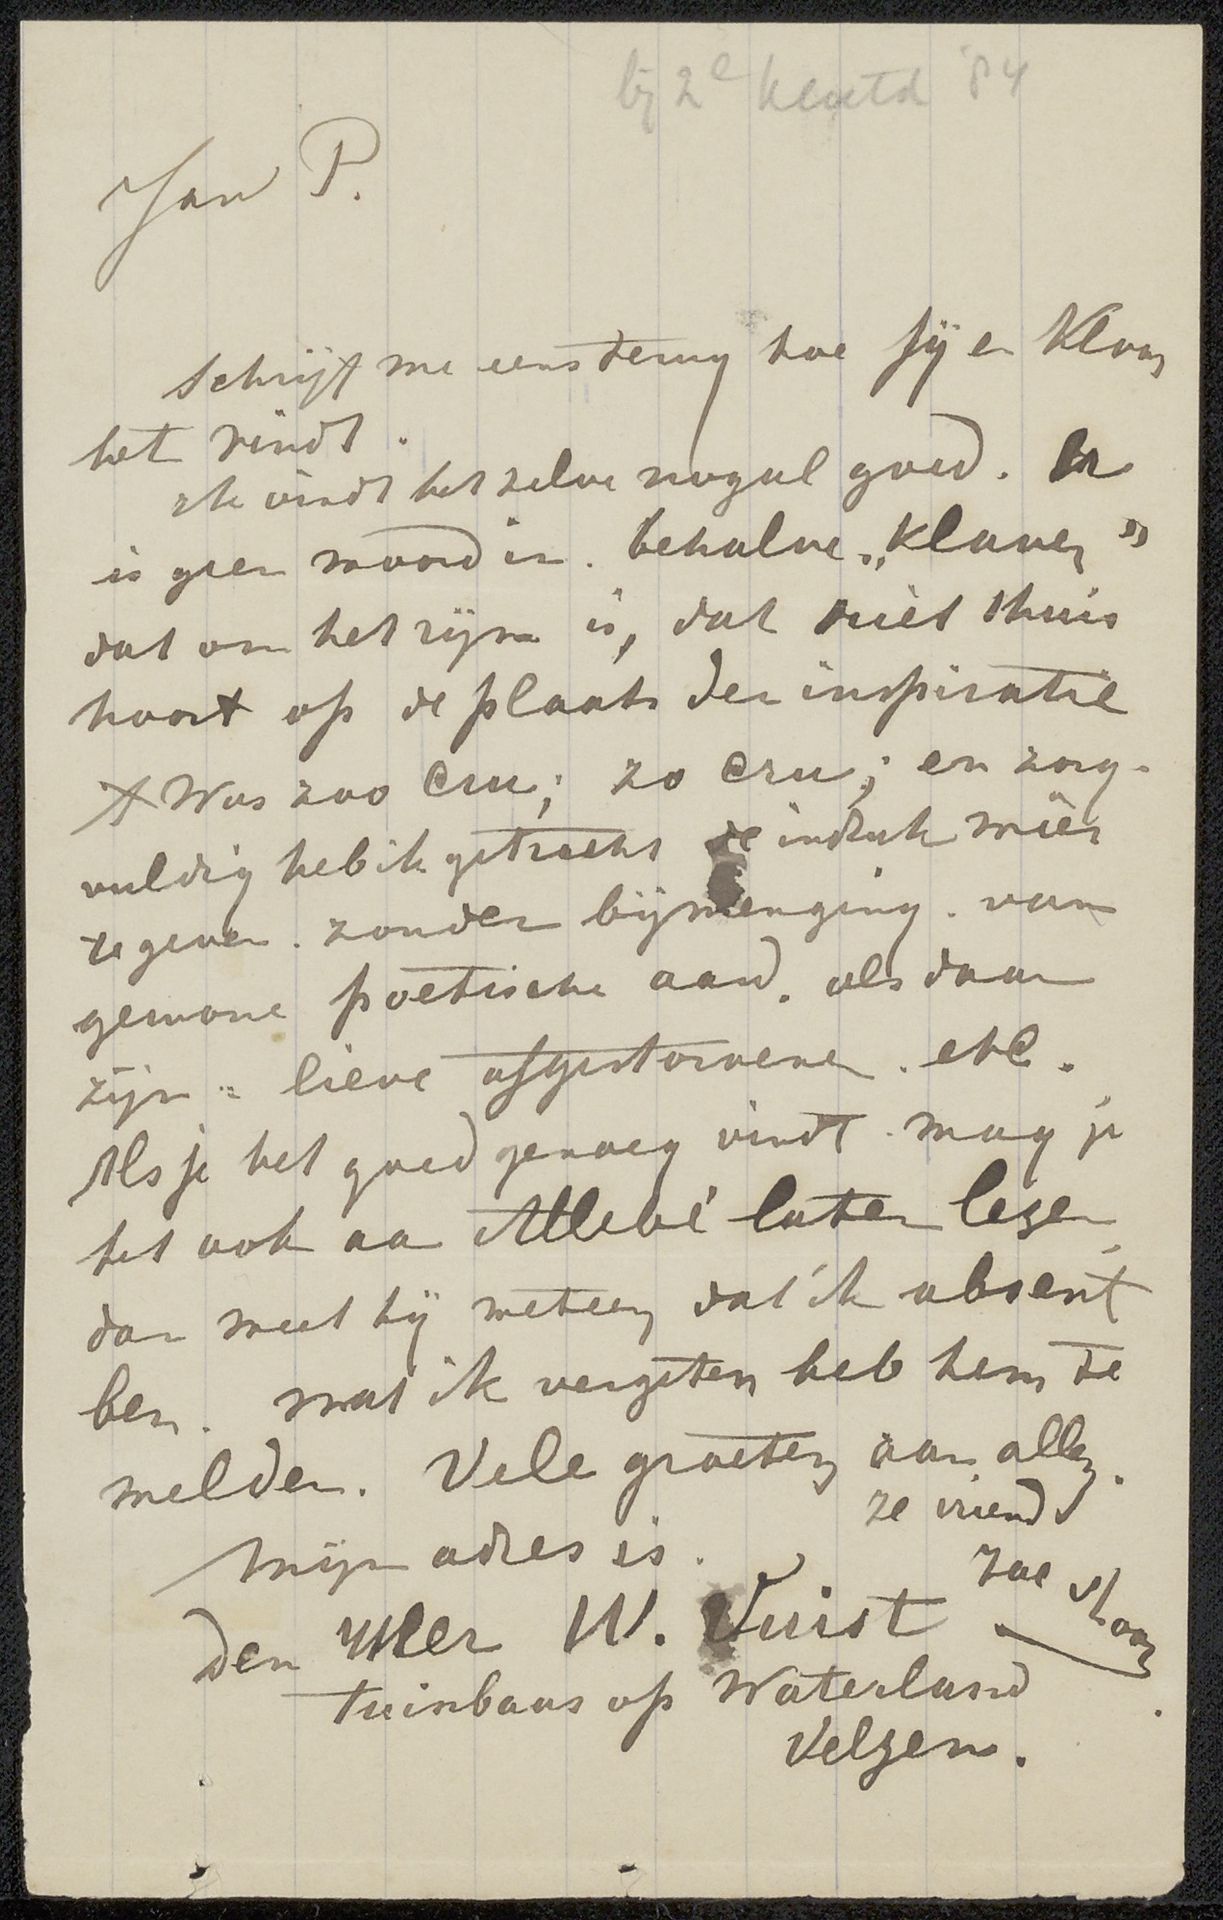 bij 2e '84
Jan P.
Schrijf me eens terug hoe jij en Kloos
het vindt.
ik vindt het zelve nogal goed. Er
is geen woord in. behalve „klaver"
dat om het rijm is, dat niet thuis
hoort op de plaats der inspiratie
't Was zoo cru; zo cru; en zorg-
vuldig heb ik getracht de indruk weer
te geven. zonder bijmenging. van
gewone poëtische aard. als daar
zijn = lieve afgestorvenen. etc.
Als je het goed genoeg vindt. mag je
het ook aan Allebé laten lezen
dan weet hij meteen dat ik absent
ben. wat ik vergeten heb hem te
melden. Vele groeten aan allen.
je vriend
mijn adres is.
den Heer W. Vuist
tuinbaas op Waterland
Velzen.